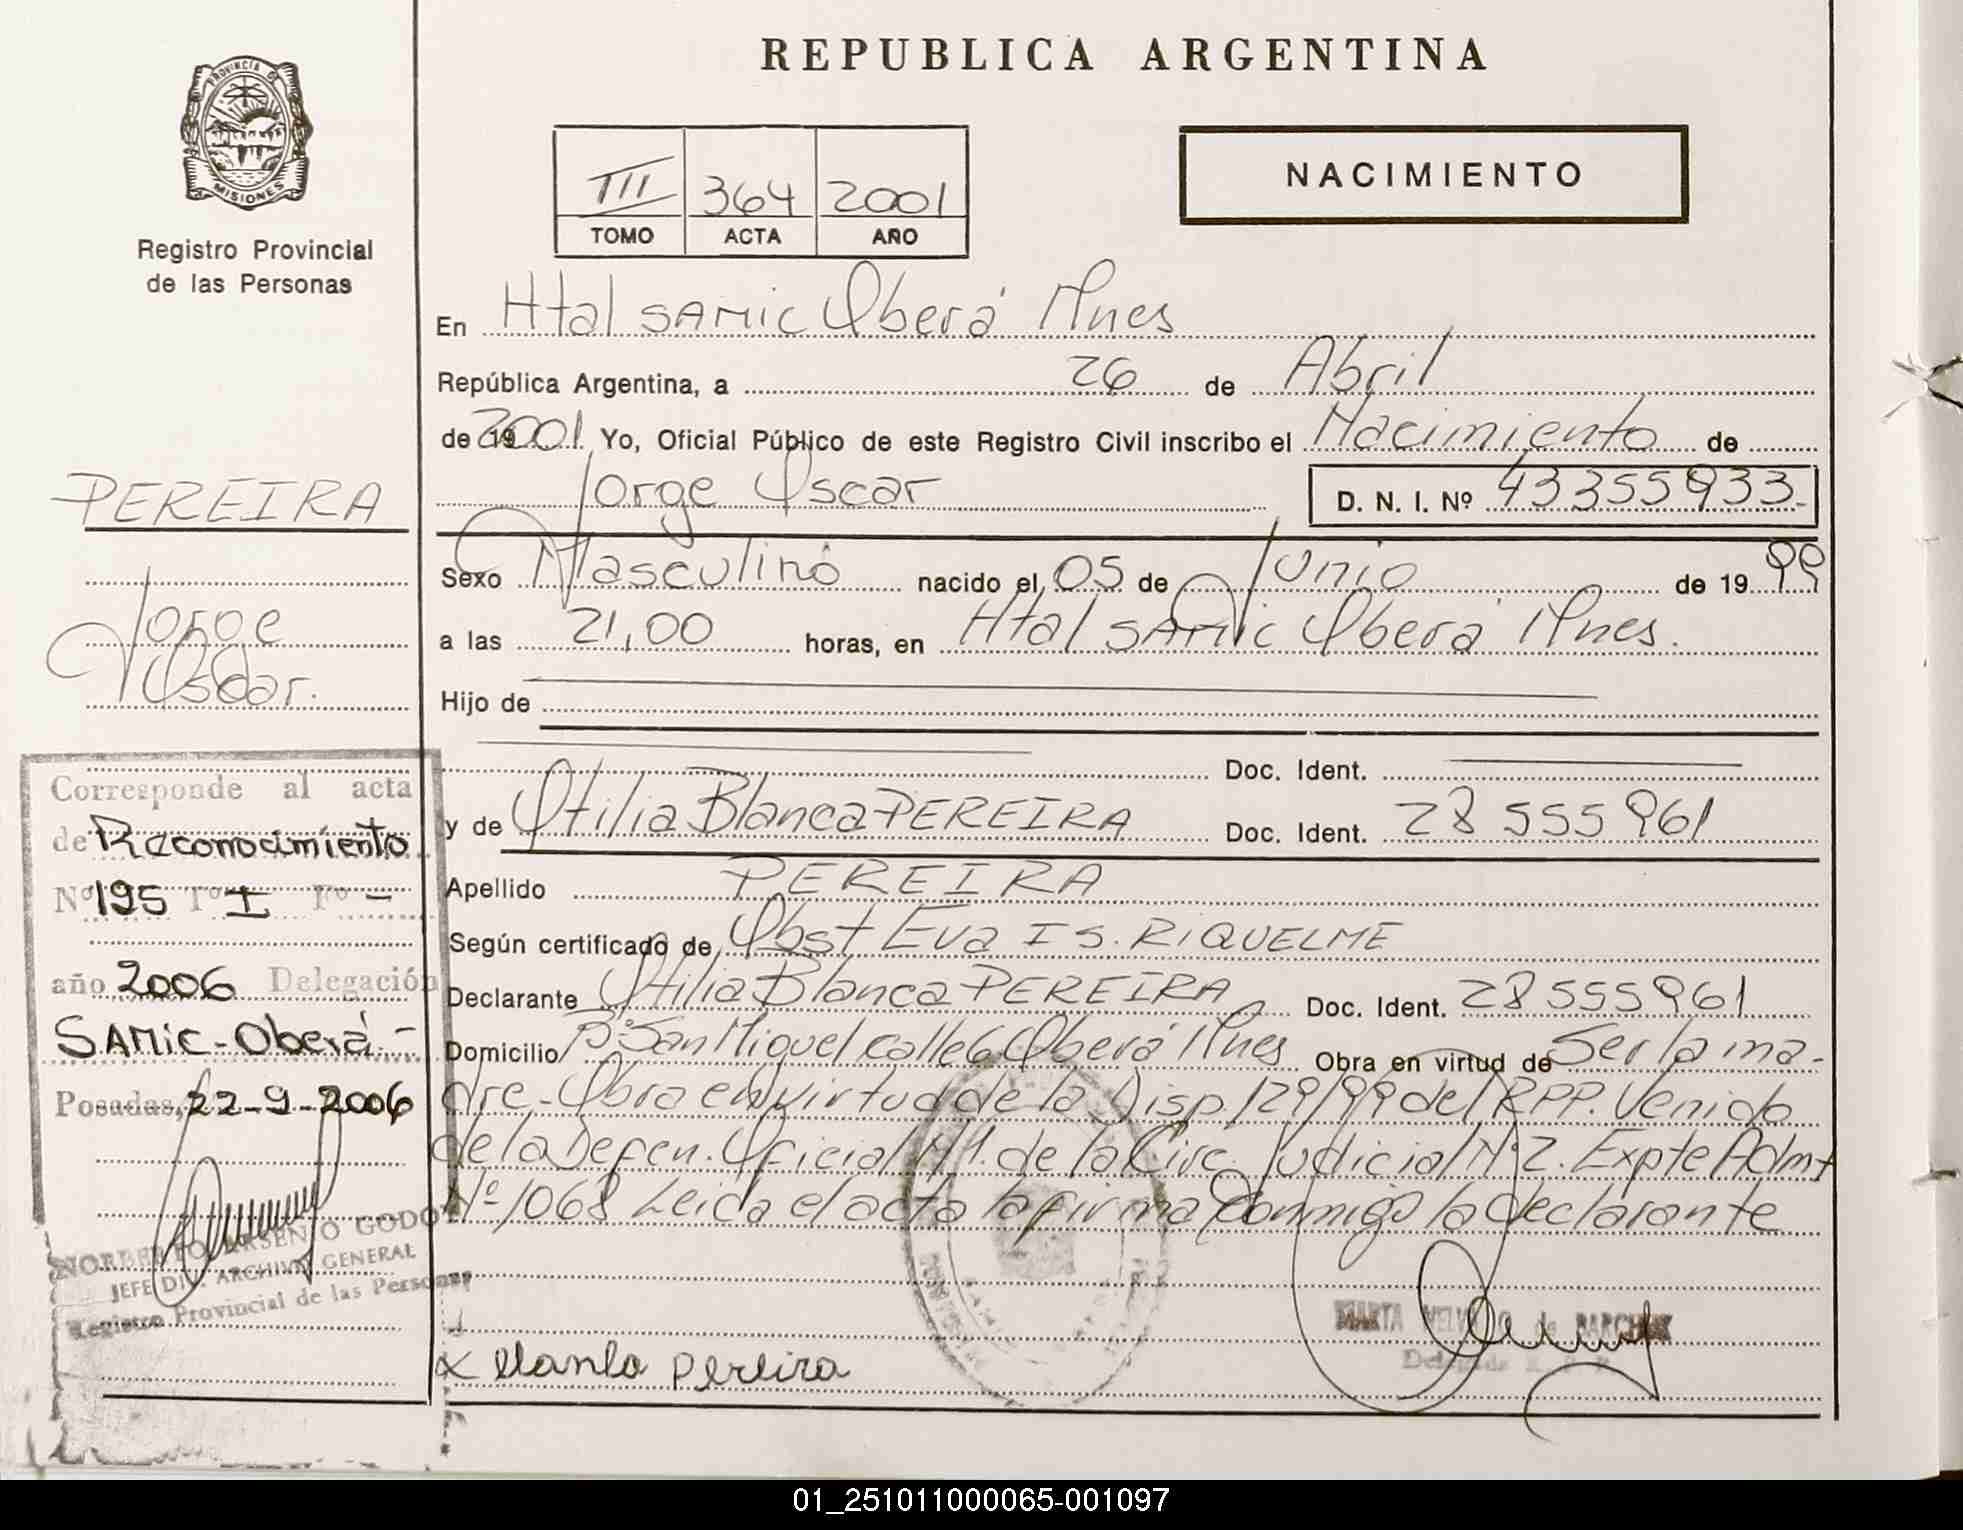 REPUBLICA ARGENTINA
PROVINCIA DE
MISIONES
Registro Provincial
de las Personas
III 364 2001
TOMO ACTA AÑO
NACIMIENTO
En Htal SAMIC Oberá Mnes
República Argentina, a 26 de Abril
de 19 2001 Yo, Oficial Público de este Registro Civil inscribo el Nacimiento de
Jorge Oscar D. N. I. Nº 43355933-
Sexo Masculino nacido el 05 de Junio de 19 99
a las 21,00 horas, en Htal SAMIC Oberá Mnes.
Hijo de
Doc. Ident.
y de Otilia Blanca PEREIRA Doc. Ident. 28 555 961
Apellido PEREIRA
Según certificado de Obst Eva IS. RIQUELME
Declarante Otilia Blanca PEREIRA Doc. Ident. 28 555 961
Domicilio Bº San Miguel calle 6 Oberá Mnes Obra en virtud de Ser la ma-
dre - Obra en virtud de la Disp. 129/99 del RPP. Venido
de la Defen. Oficial Nº1. de la Circ. Judicial Nº2. Expte Admt
Nº 1068 Leida el acta la firma conmigo la declarante
x Blanca Pereira
MARTA de
Delegada R. P. P.
PEREIRA
Jorge
Oscar.
Corresponde al acta
de Reconocimiento
Nº 195 Tº I Fº -
año 2006 Delegación
SAMIC-Oberá-
Posadas, 22-9-2006
NORBERTO ARSENIO GODOY
JEFE DIV. ARCHIVO GENERAL
Registro Provincial de las Personas
01_251011000065-001097